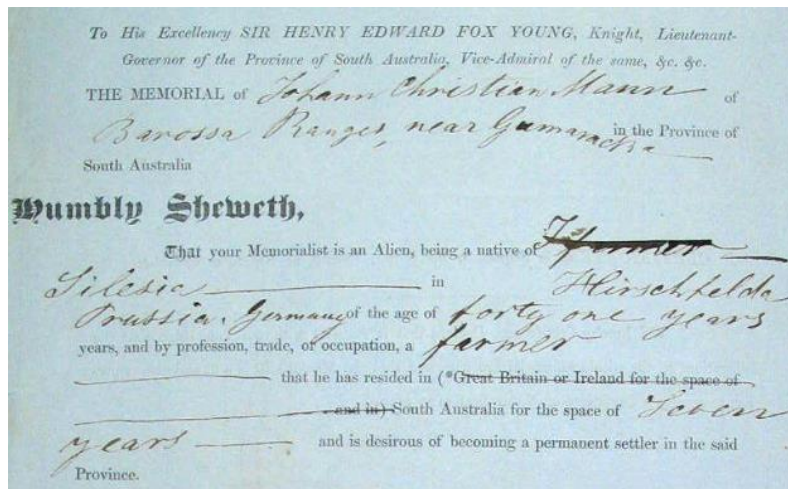 To His Excellency SIR HENRY EDWARD FOX YOUNG, Knight, Lieutenant-
Governor of the Province of South Australia, Vice-Admiral of the same, &c. &c.
THE MEMORIAL of Johann Christian Mann of
Barossa Ranges, near Gumaracka in the Province of
South Australia
Humbly Sheweth,
That your Memorialist is an Alien, being a native of farmer
Silesia in Hirschfelda
Prussia, Germany of the age of forty one years
years, and by profession, trade, or occupation, a farmer
that he has resided in (*Great Britain or Ireland for the space of
and in) South Australia for the space of Seven
years and is desirous of becoming a permanent settler in the said
Province.